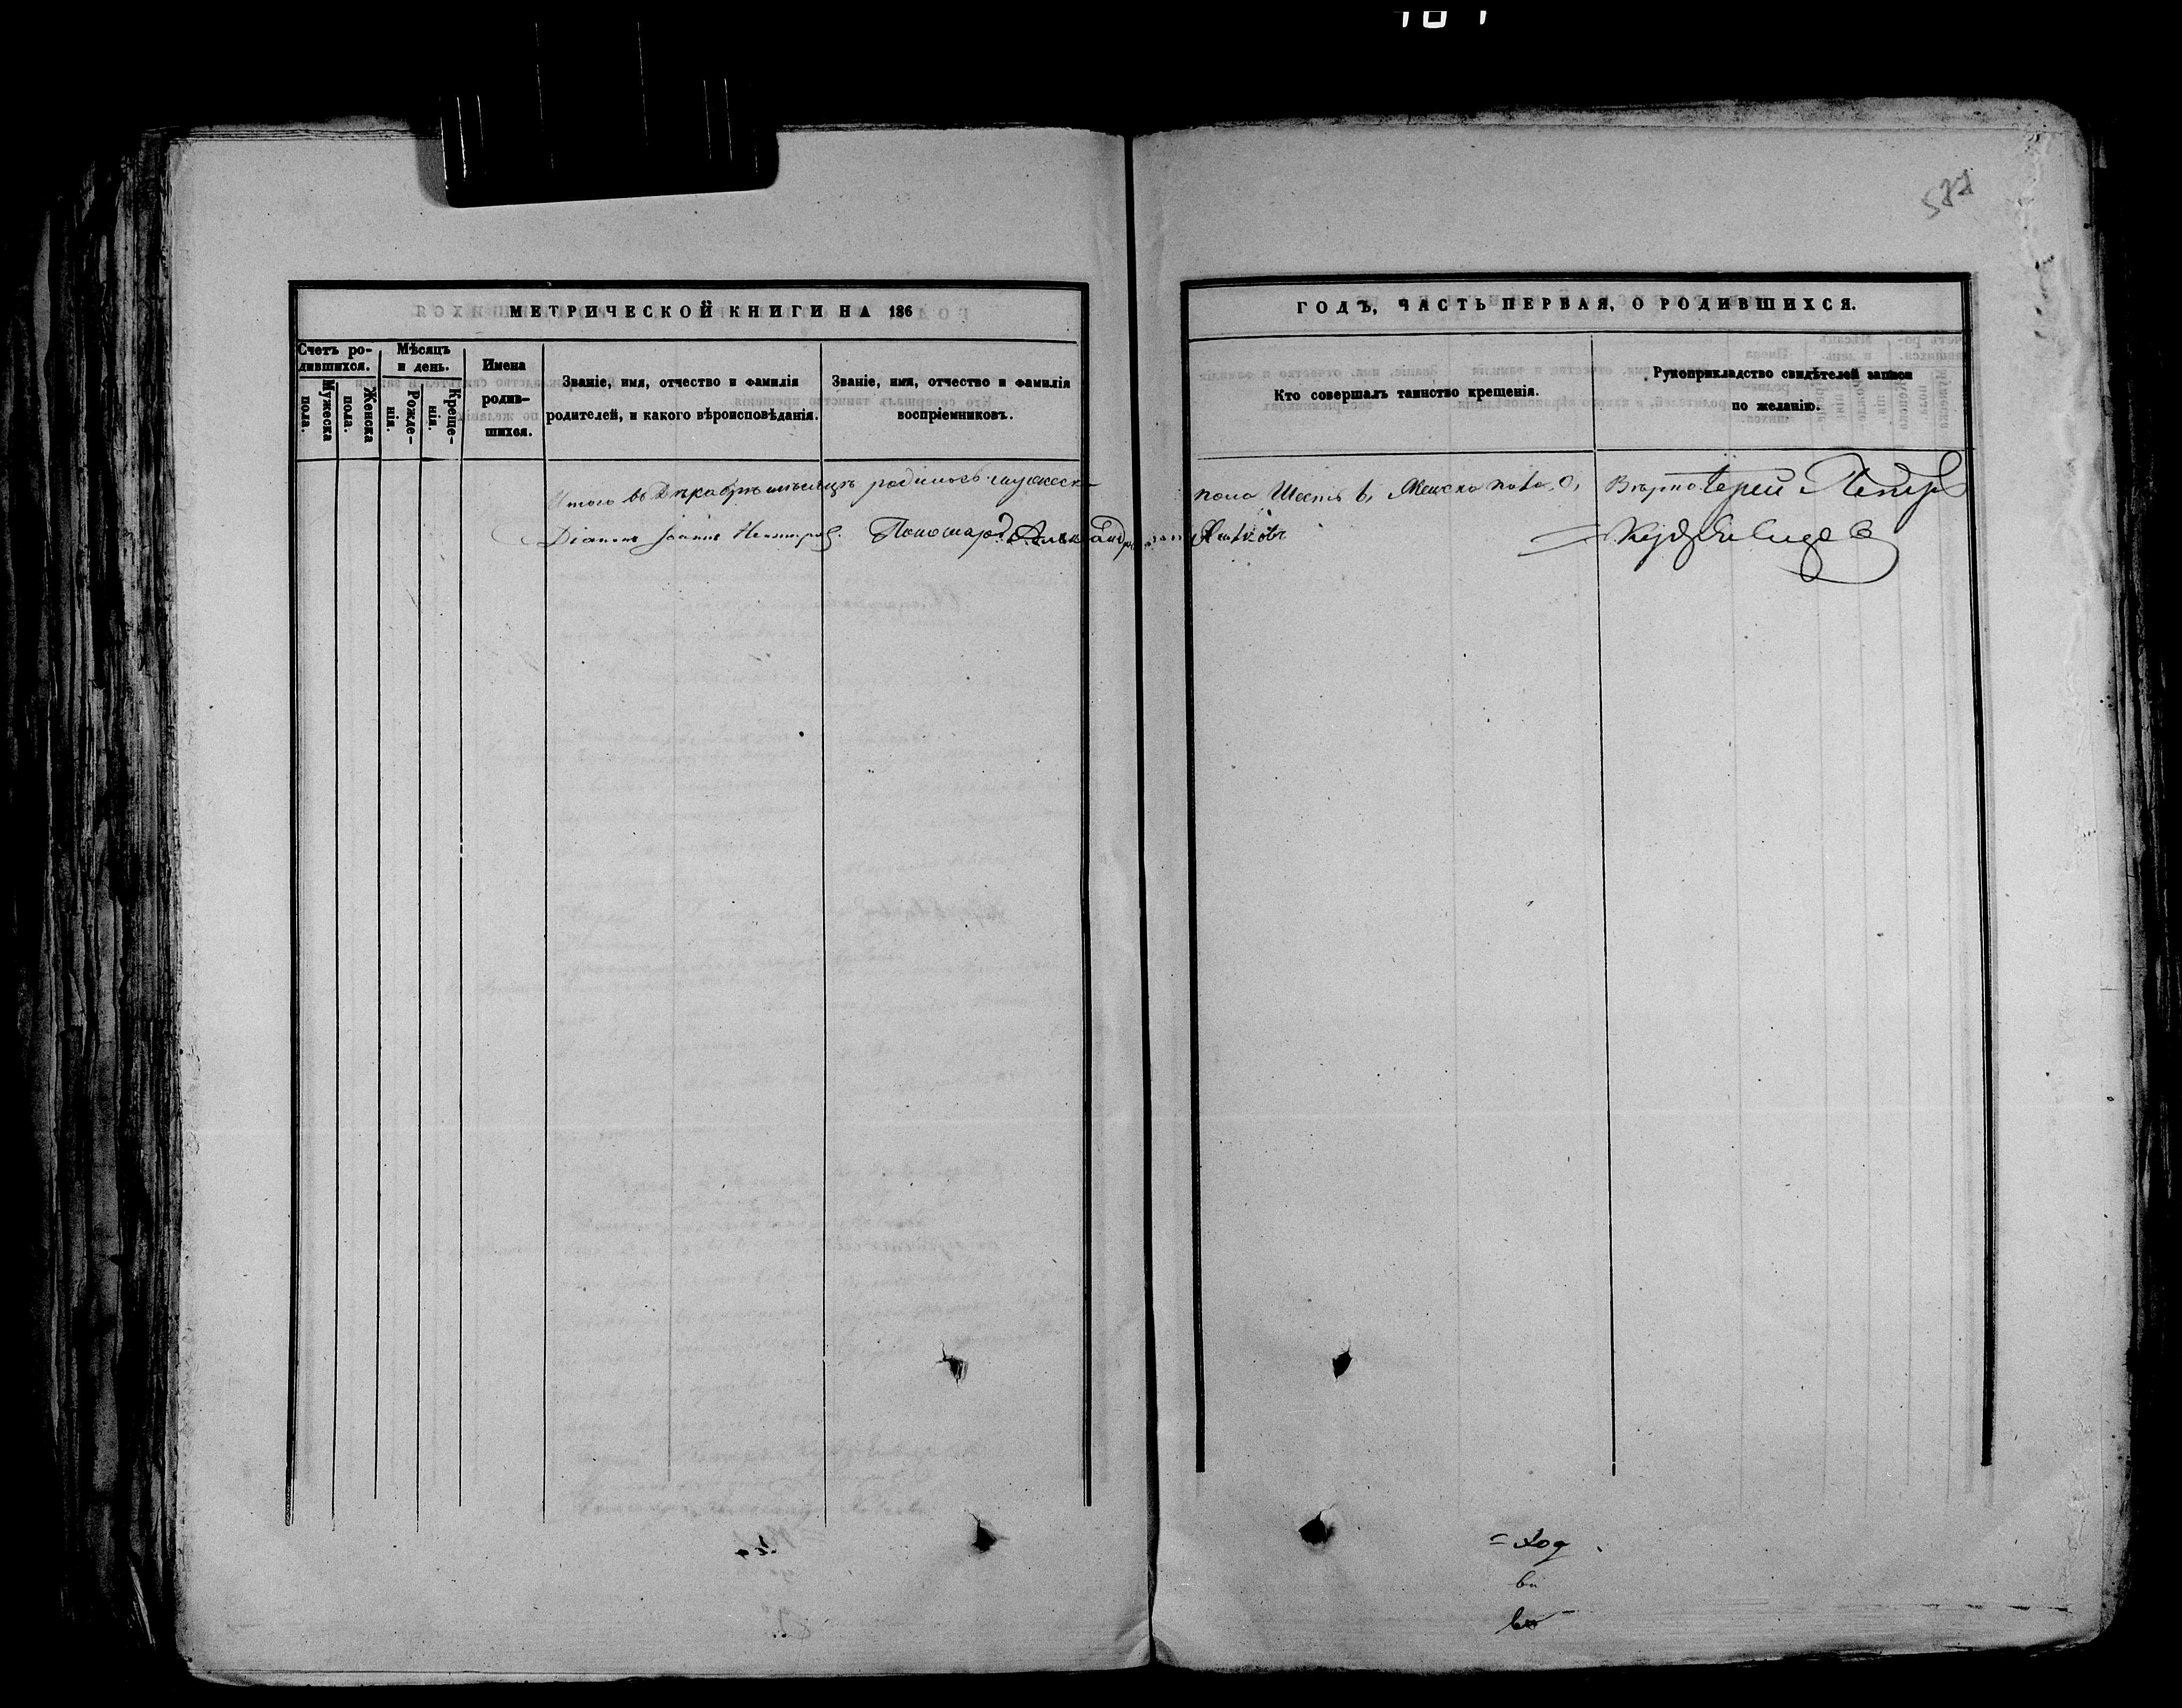 587
МЕТРИЧЕСКОЙ КНИГИ НА 186
Счетъ ро-
дившихся.
Мужеска
пола.
Женска
пола.
Мѣсяцъ
и день.
Рожде-
нія.
Креще-
нія.
Имена
родив-
шихся.
Званіе, имя, отчество и фамилія
родителей, и какого вѣроисповѣданія.
Званіе, имя, отчество и фамилія
воспріемниковъ.
ГОДЪ, ЧАСТЬ ПЕРВАЯ, О РОДИВШИХСЯ.
Кто совершалъ таинство крещенія.
Рукоприкладство свидѣтелей записи
по желанію.
Итого въ Декабрѣ мѣсяцѣ родилось мужеска пола Шесть 6, Женска пола, 0, Вѣрно Іерей Петръ
Діаконъ Іоаннъ Пономарь Александръ